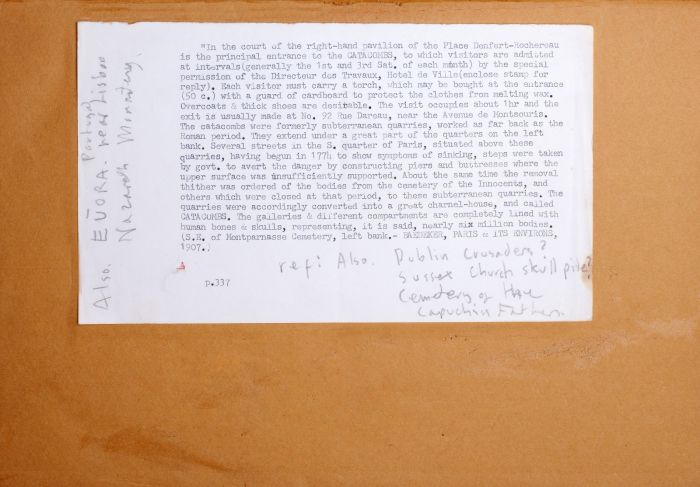 "In the court of the right-hand pavilion of the Place Denfert-Rochereau
is the principal entrance to the CATACOMBS, to which visitors are admitted
at intervals(generally the 1st and 3rd Sat. of each month) by the special
permission of the Directeur des Travaux, Hotel de Ville(enclose stamp for
reply). Each visitor must carry a torch, which may be bought at the entrance
(50 c.) with a guard of cardboard to protect the clothes from melting wax.
Overcoats & thick shoes are desirable. The visit occupies about 1hr and the
exit is usually made at No. 92 Rue Dareau, near the Avenue de Montsouris.
The catacombs were formerly subterranean quarries, worked as far back as the
Roman period. They extend under a great part of the quarters on the left
bank. Several streets in the S. quarter of Paris, situated above these
quarries, having begun in 1774 to show symptoms of sinking, steps were taken
by govt. to avert the danger by constructing piers and buttresses where the
upper surface was insufficiently supported. About the same time the removal
thither was ordered of the bodies from the cemetery of the Innocents, and
others which were closed at that period, to these subterranean quarries. The
quarries were accordingly converted into a great charnel-house, and called
CATACOMBS. The galleries & different compartments are completely lined with
human bones & skulls, representing, it is said, nearly six million bodies.
(S.E. of Montparnasse Cemetery, left bank.- BAEDEKER, PARIS & ITS ENVIRONS,
1907.)
p.337
ref: Also. Dublin Crusaders?
Sussex Church skull pile?
Cemetery of the
Capuchin Fathers.
Also. EVORA. near Lisbon
Portugal
Nazareth Monastery.